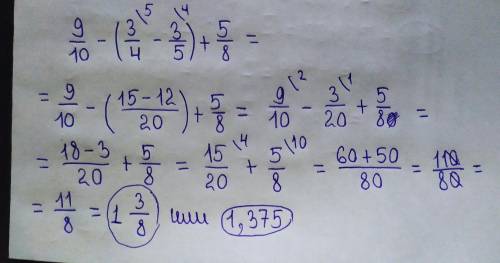 9/10 - (3/4 \5 - 3/5 \4) + 5/8 =
= 9/10 - ((15-12)/20) + 5/8 = 9/10 \2 - 3/20 \1 + 5/8 =
= (18-3)/20 + 5/8 = 15/20 \4 + 5/8 \10 = (60+50)/80 = 110/80 =
= 11/8 = 1 3/8 или 1,375